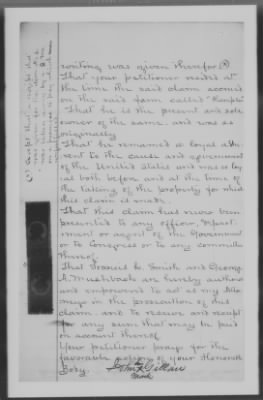 writing was given therefor (*)
That your petitioner resided at
the time the said claim accrued
on the said farm called
That he is the present and sole
owner of the same and was so
originally
That he remained a loyal adhe-
rent to the cause and government
of the United States and was so loy
al both before and at the time of
the taking of the property for which
this claim is made.
That this claim has never been
presented to any officer, depart
ment or agent of the Government
or to Congress or to any committee
thereof.
That Francis L. Smith and George
A. Mushbach are hereby authoriz
and empowered to act as my Atto
neys in the prosecution of this
claim and to receive and receipt
for any sum that may be paid
on account thereof.
Your petitioner prays for the
favorable action of your Honorable
Body.